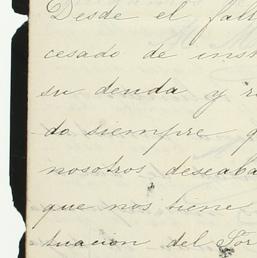 Desde el fall
cesado de inst
su deuda y r
do siempre q
nosotros deseaba
que nos tiene
tuacion del Tor